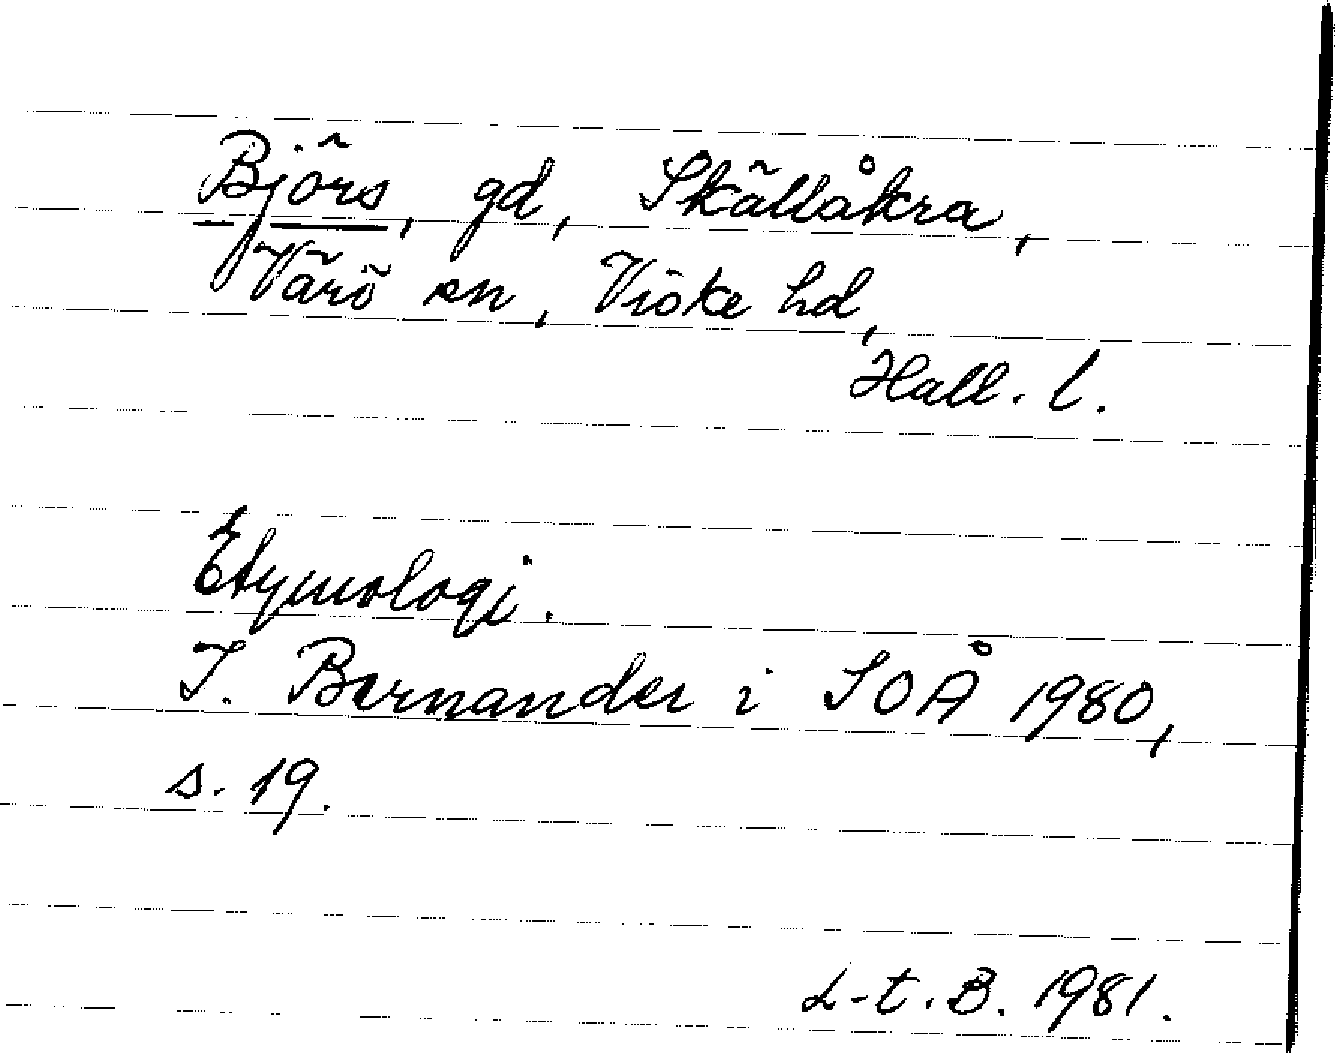 Björs, gd, Skällåkra,
Värö sn, Viske hd,
Hall. l.
Etymologi.
I. Bernander i SOÅ 1980,
s. 19.
L-t. B. 1981.